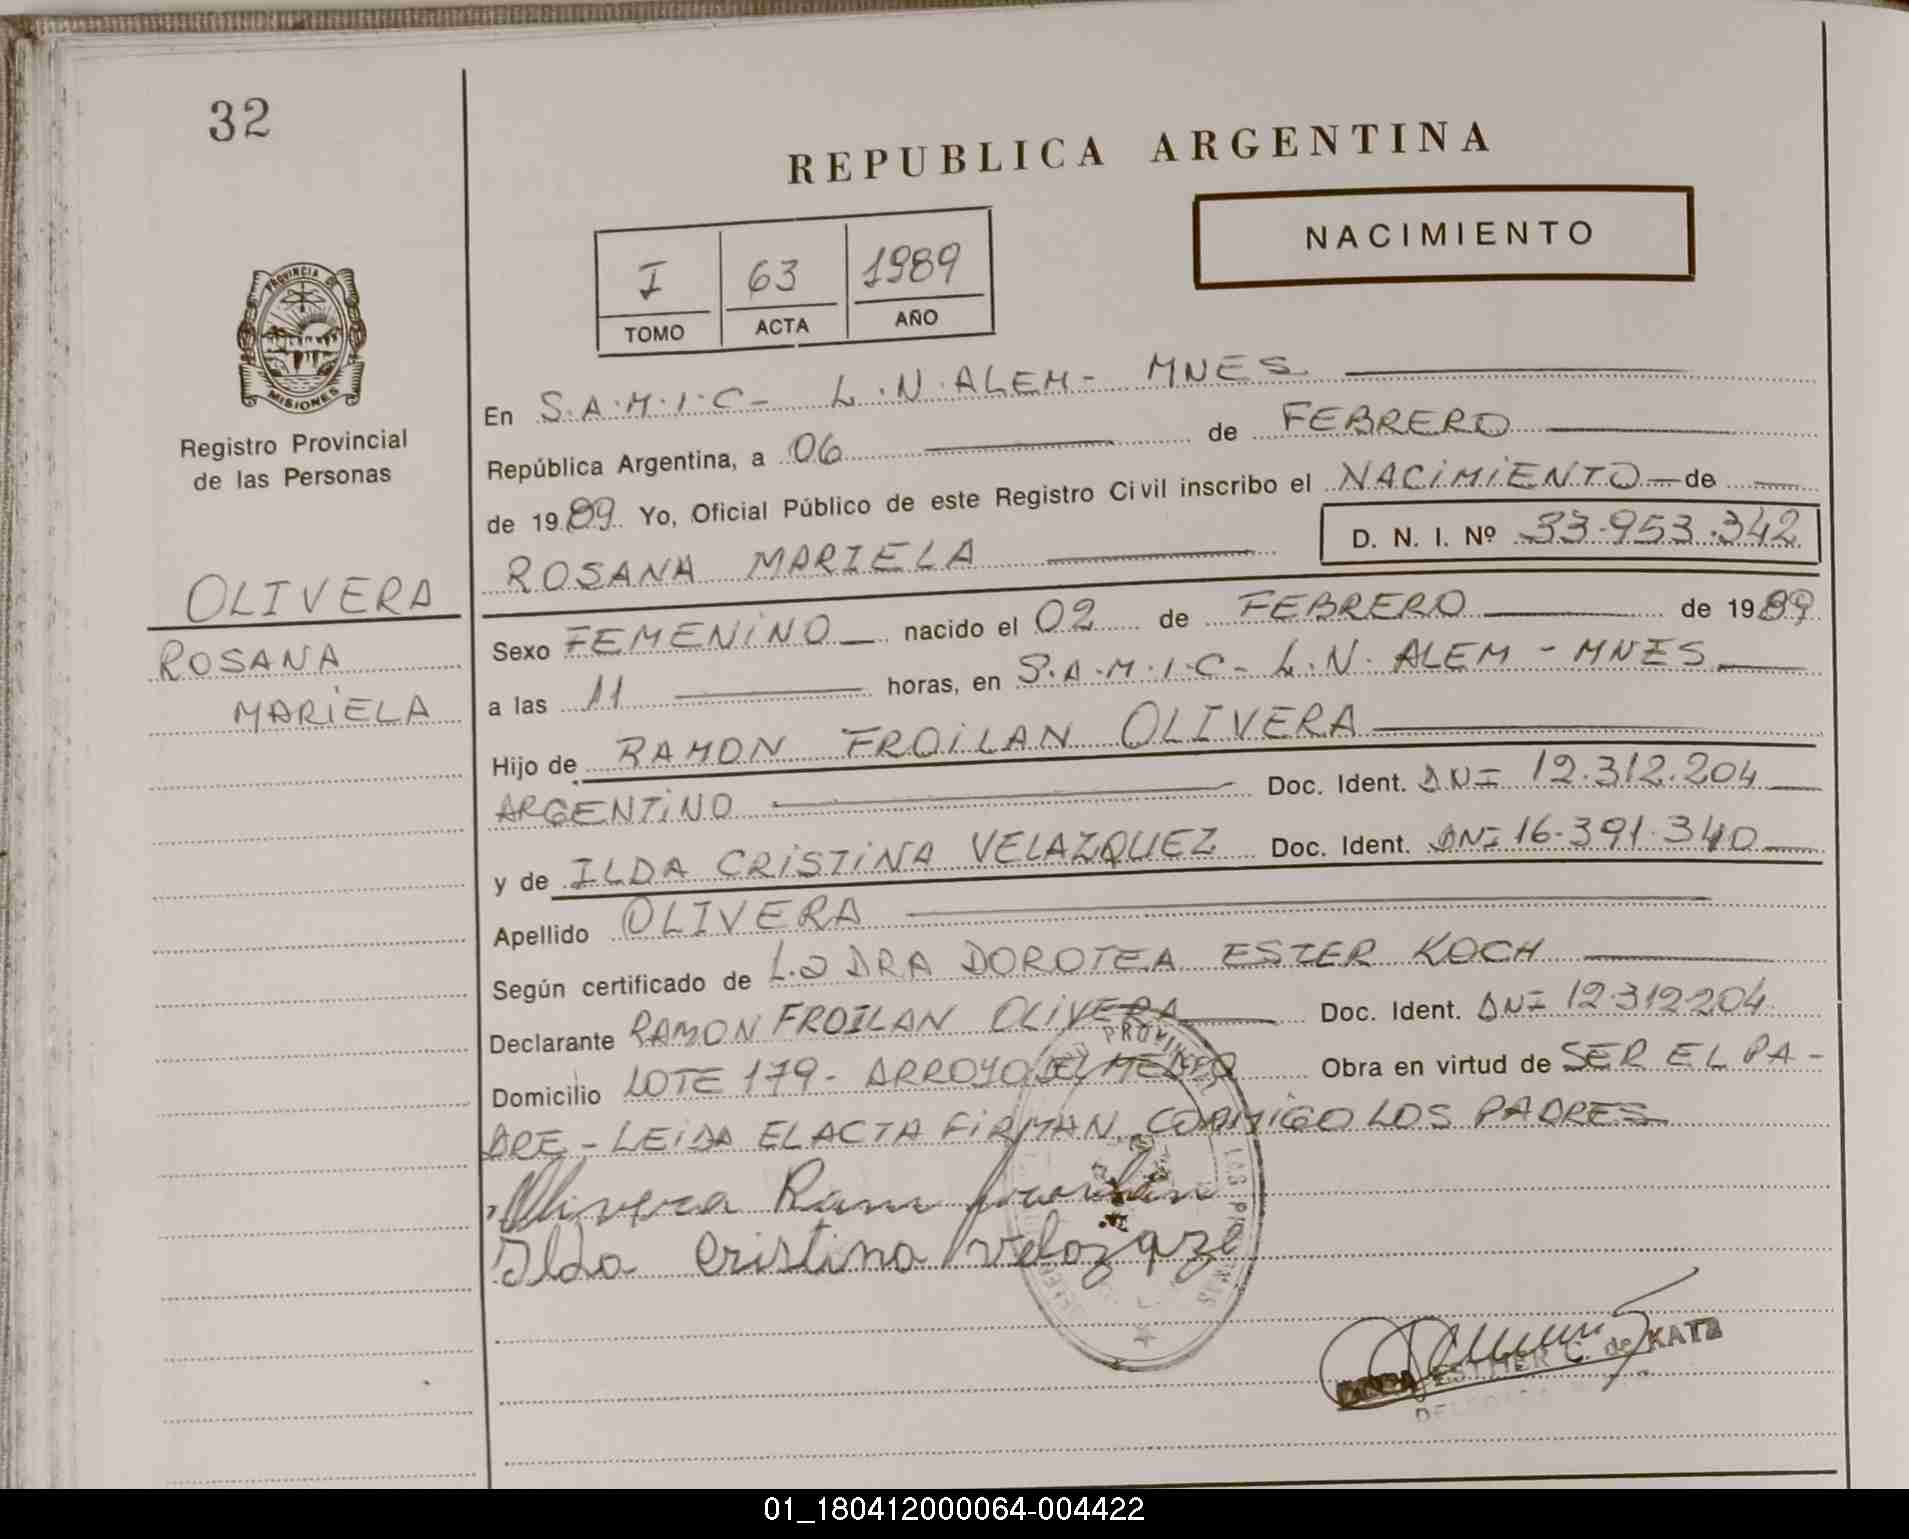 32
REPUBLICA ARGENTINA
NACIMIENTO
I 63 1989
TOMO ACTA AÑO
PROVINCIA DE
MISIONES
Registro Provincial
de las Personas
OLIVERA
ROSANA
MARIELA
En S.A.M.I.C- L.N.ALEM- MNES
República Argentina, a 06 de FEBRERO
de 1989 Yo, Oficial Público de este Registro Civil inscribo el NACIMIENTO de
ROSANA MARIELA D. N. I. Nº 33.953.342
Sexo FEMENINO nacido el 02 de FEBRERO de 1989
a las 11 horas, en S.A.M.I.C- L.N. ALEM - MNES
Hijo de RAMON FROILAN OLIVERA
ARGENTINO Doc. Ident. DNI 12.312.204
y de ILDA CRISTINA VELAZQUEZ Doc. Ident. DNI 16.391.340
Apellido OLIVERA
Según certificado de DRA DOROTEA ESTER KOCH
Declarante RAMON FROILAN OLIVERA Doc. Ident. DNI 12.312.204
Domicilio LOTE 179- ARROYO DEL MEDIO Obra en virtud de SER EL PA-
DRE - LEIDA EL ACTA FIRMAN CONMIGO LOS PADRES
Olivera Ramon Froilan
Ilda Cristina Velazqze
ESTHER C. de KATZ
01_180412000064-004422